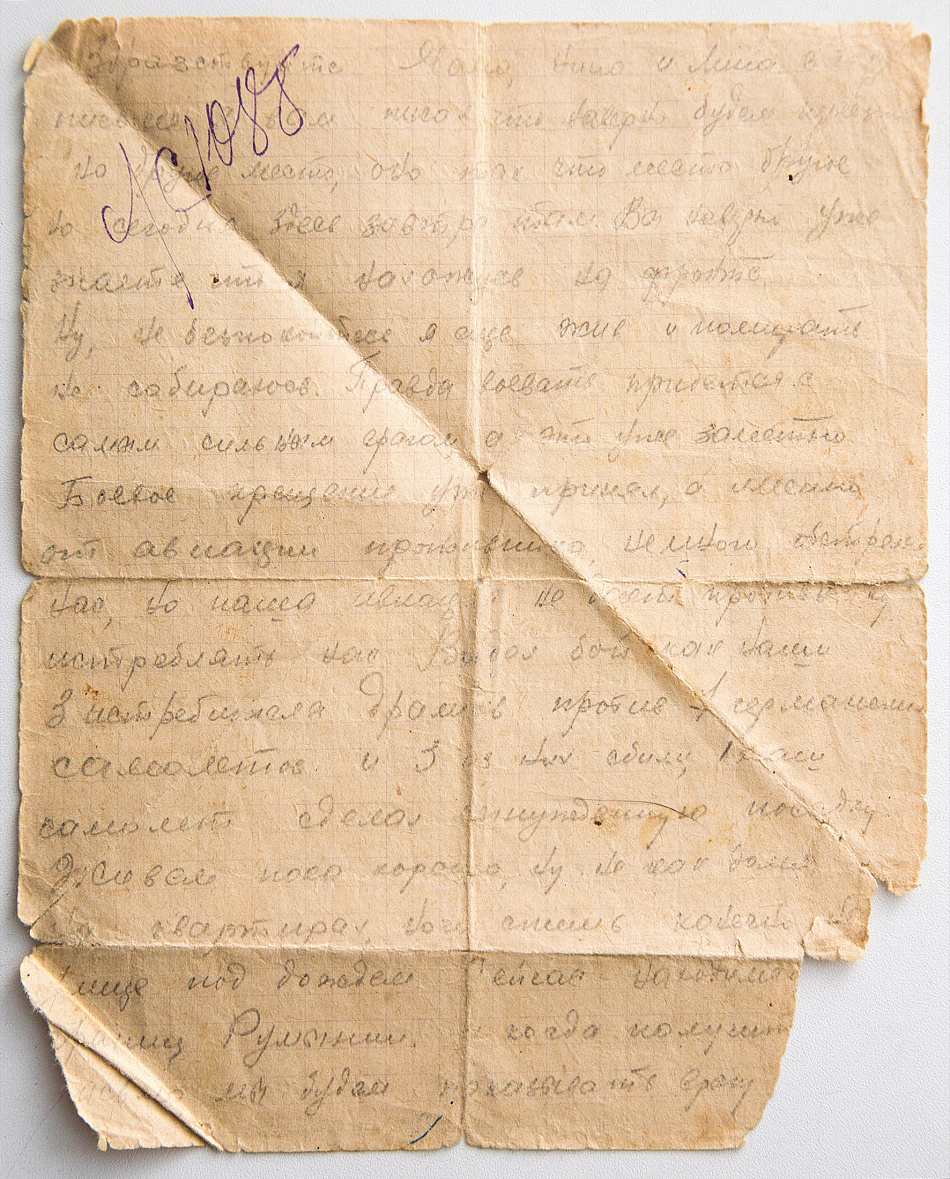 Здравствуйте Мама, Нина и Лина. в
писал что завтра будем
на другое место, оно так что место другое
то сегодня здесь завтра там. Вы уже
знаете что я нахожусь на фронте.
Ну, не безпокойтесь я еще жив и помирать
не сабираюсь. Правда воевать придется с
самым сильным врагом а это уже заметно
Боевое крещение уже принял, а именно
от авиации противника, немного обстрел
нас, но наша авиация не дает противнику
истреблять нас Видел бой как наши
3 истребителя дрались против 7 германских
самолетов. и 3 из них сбили, 1 наш
самолет сделал вынужденную посадку
Живем пока хорошо, ну не как дома
на квартирах, ночи спишь конечно на
улице под дождем Сейчас находимся
границ Румынии. и когда получите
мы будем показывать врагу
№ 1088